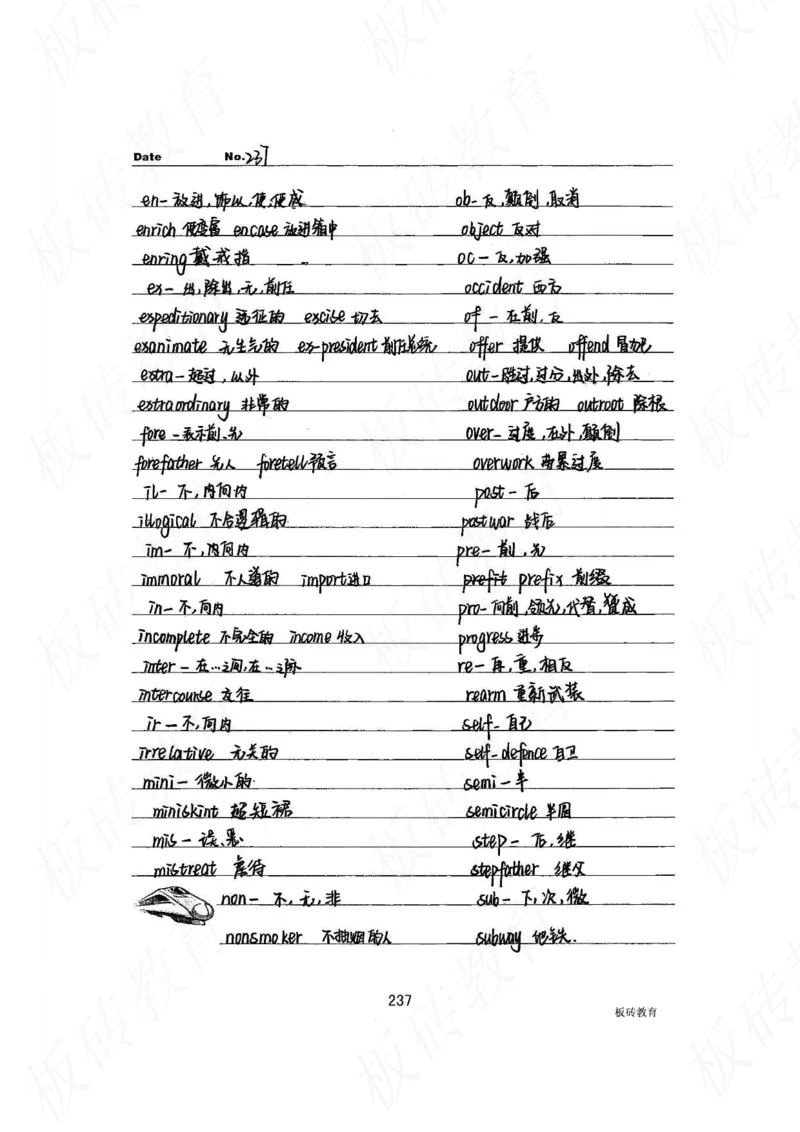 Date No.237
en- 放进,饰以,使,使成
enrich 使变富 encase 放进箱中
enring 戴戒指
ex- 出,除出,无,前任
expeditionary 远征的 excise 切去
exanimate 无生气的 ex-president 前任总统
extra- 超过,以外
extraordinary 非常的
fore -表示前、先
forefather 先人 foretell 预言
il- 不,内向内
illogical 不合逻辑的
im- 不,内向内
immoral 不人道的 import 进口
in- 不,向内
incomplete 不完全的 income 收入
inter - 在…之间,在…之际
intercourse 交往
ir - 不,向内
irrelative 无关的
mini- 微小的
miniskint 超短裙
mis - 误、恶
mistreat 虐待
non- 不,无,非
nonsmoker 不抽烟的人
ob- 反,颠倒,取消
object 反对
oc - 反,加强
occident 西方
of - 在前,反
offer 提供 offend 冒犯
out- 胜过,过分,出外,除去
outdoor 户方的 outroot 除根
over- 过度,在外,颠倒
overwork 劳累过度
post - 后
postwar 战后
pre- 前,先
prefit prefix 前缀
pro- 向前,领先,代替,赞成
progress 进步
re- 再,重,相反
rearm 重新武装
self- 自己
self-defence 自卫
semi - 半
semicircle 半圆
step- 后,继
stepfather 继父
sub- 下,次,微
subway 地铁.
237
板砖教育